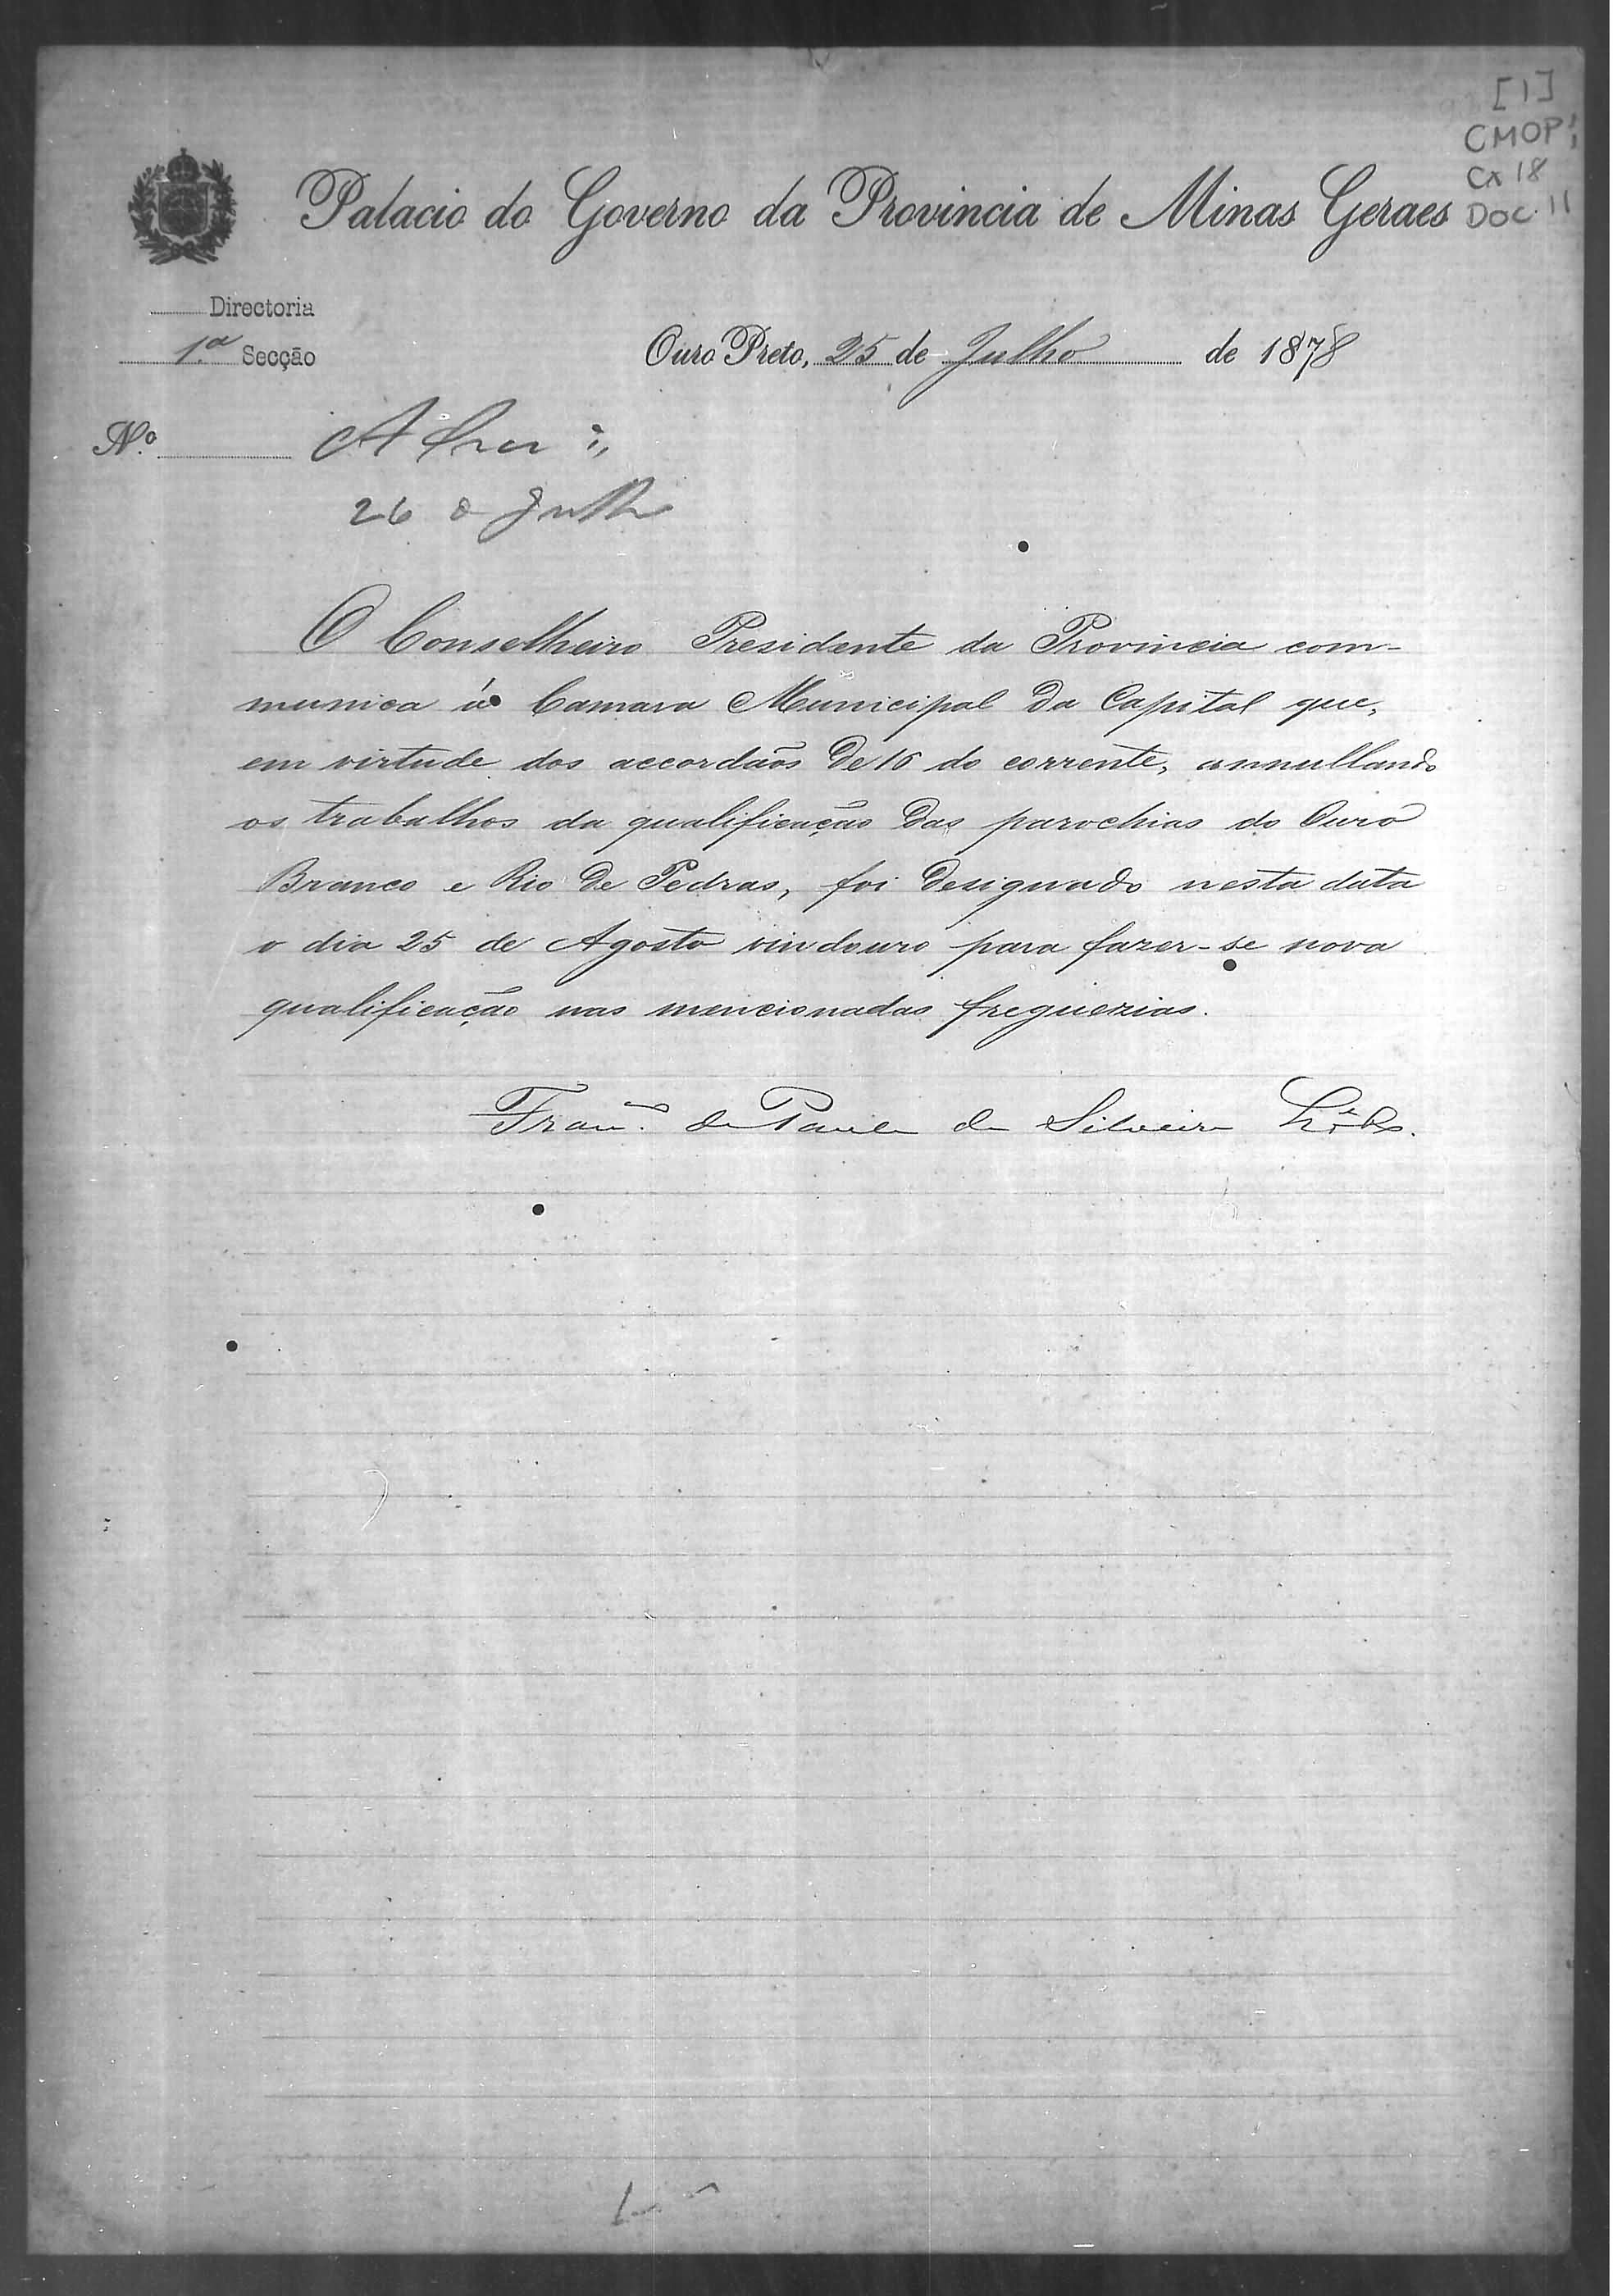 [1]
CMOP;
Cx 18
DOC. 11
Palacio do Governo da Provincia de Minas Geraes
Directoria
1.ª Secção
Ouro Preto, 25 de Julho de 1878
N.º
26 de Julho
O Conselheiro Presidente da Provincia com-
munica á Camara Municipal da Capital que,
em virtude dos accordãos de 16 do corrente, annullando
os trabalhos da qualificação das parochias do Ouro
Branco e Rio de Pedras, foi designado nesta data
o dia 25 de Agosto vindouro para fazer-se nova
qualificação nas mencionadas freguezias.
Fran.co de Paula da Silveira Lobo.